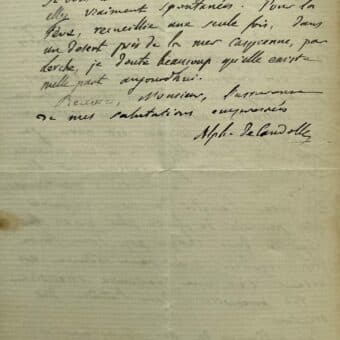 elles vraiment spontanées. Pour la
Fève, recueillie une seule fois, dans
un désert près de la mer caspienne, par
Lerche, je doute beaucoup qu'elle existe
nulle part aujourd'hui.
Recevez, Monsieur, l'assurance
de mes salutations empressées
Alph. de Candolle